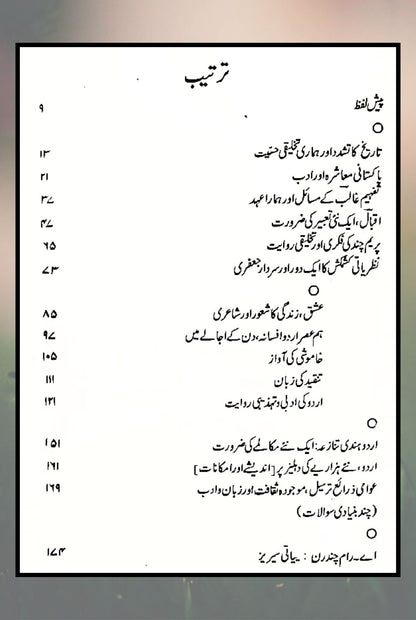 ترتیب
پیش لفظ ۹
تاریخ کا تشدد اور ہماری تخلیقی حسیّت ۱۳
پاکستانی معاشرہ اور ادب ۲۱
تفہیم غالبؔ کے مسائل اور ہمارا عہد ۳۷
اقبالؔ، ایک نئی تعبیر کی ضرورت ۴۷
پریم چند کی فکری اور تخلیقی روایت ۶۵
نظریاتی کشمکش کا ایک دور اور سردار جعفری ۷۳
عشق، زندگی کا شعور اور شاعری ۸۵
ہم عصر اردو افسانہ، دن کے اجالے میں ۹۷
خاموشی کی آواز ۱۰۵
تنقید کی زبان ۱۱۱
اردو کی ادبی و تہذیبی روایت ۱۲۱
اردو ہندی تنازعہ: ایک نئے مکالمے کی ضرورت ۱۵۱
اردو، نئے ہزاریے کی دہلیز پر [اندیشے اور امکانات] ۱۶۱
عوامی ذرائع ترسیل، موجودہ ثقافت اور زبان و ادب ۱۶۹
(چند بنیادی سوالات)
اے۔ رام چندرن : ییاتی سیریز ۱۷۴